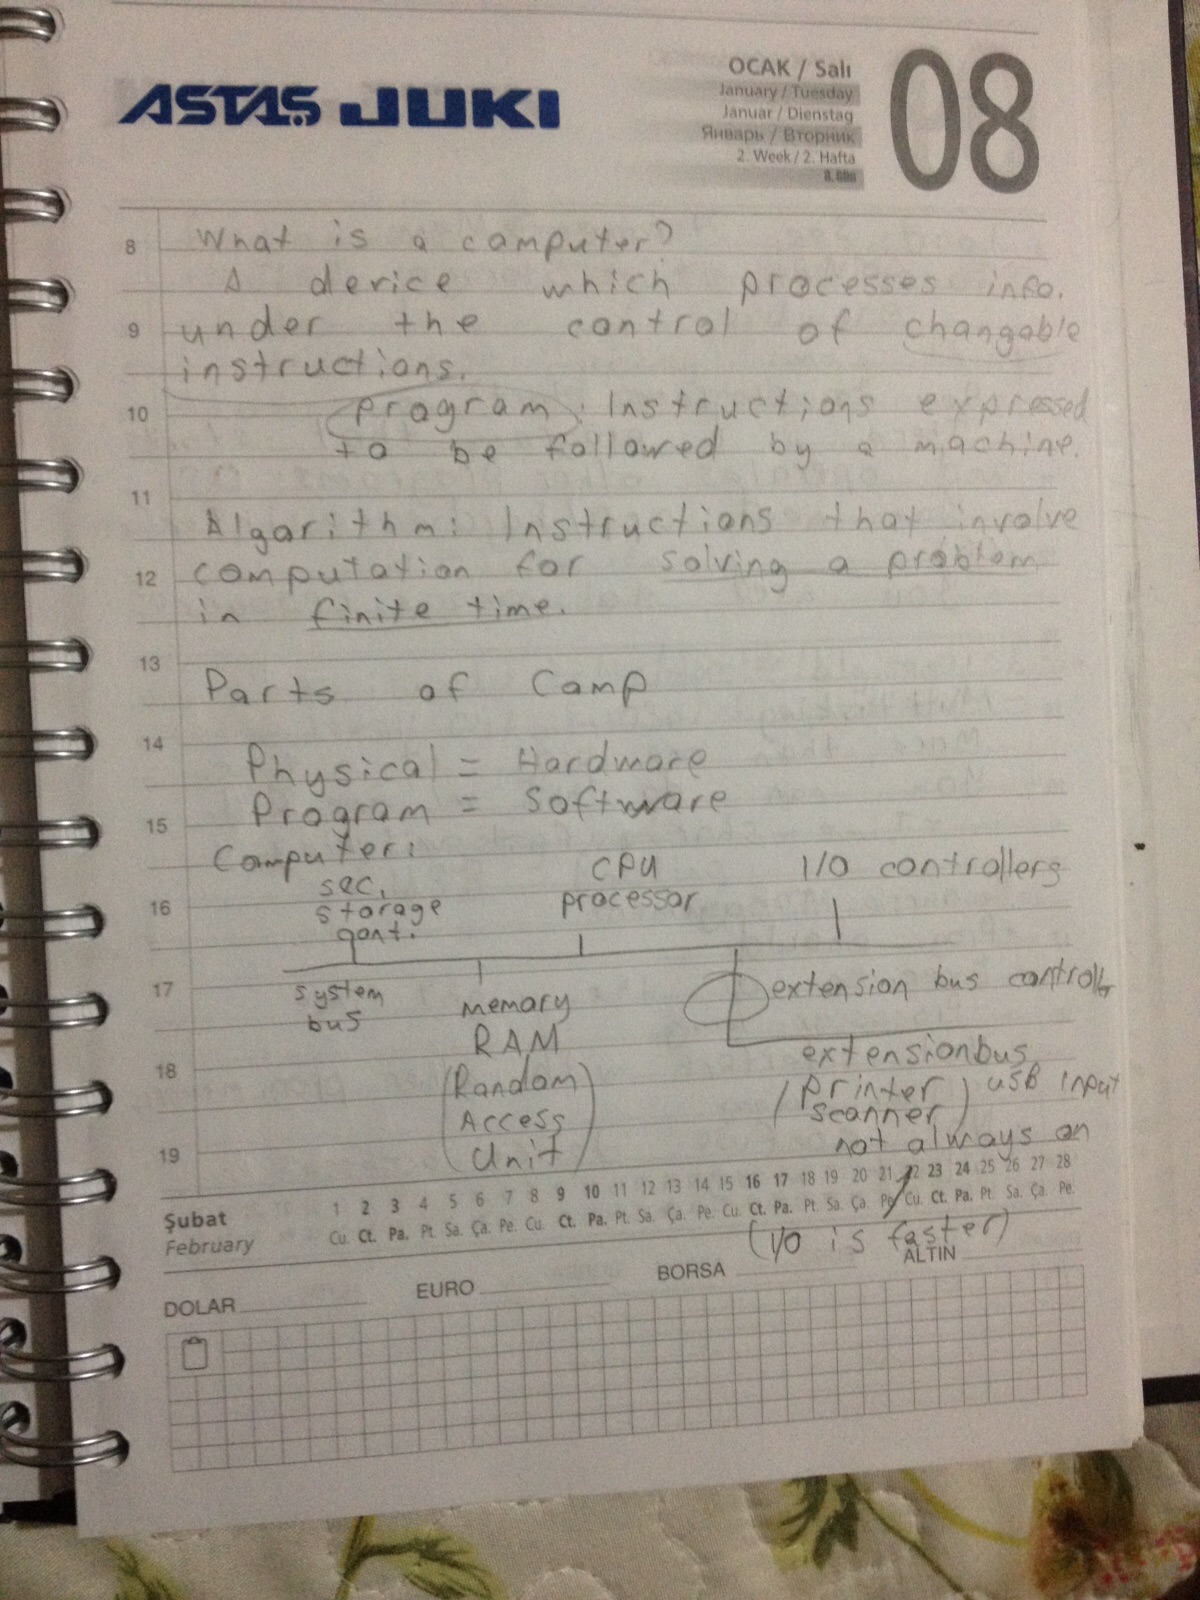 ASTAŞ JUKI
OCAK / Salı
January / Tuesday
Januar / Dienstag
Январь / Вторник
2. Week / 2. Hafta
08
8 What is a computer?
A device which processes info.
9 under the control of changable
instructions.
10 program: Instructions expressed
to be followed by a machine.
11
Algorithm: Instructions that involve
12 computation for solving a problem
in finite time.
13
Parts of Comp
14
Physical = Hardware
Program = Software
15
Computer:
sec. CPU I/O controllers
16 storage processor
cont.
17 system memory extension bus controller
bus RAM
extensionbus
18 (Random (printer) USB input
Access scanner)
19 Unit) not always on
Şubat 1 2 3 4 5 6 7 8 9 10 11 12 13 14 15 16 17 18 19 20 21 22 23 24 25 26 27 28
February Cu. Ct. Pa. Pt. Sa. Ça. Pe. Cu. Ct. Pa. Pt. Sa. Ça. Pe. Cu. Ct. Pa. Pt. Sa. Ça. Pe. Cu. Ct. Pa. Pt. Sa. Ça. Pe.
(I/O is faster)
DOLAR EURO BORSA ALTIN